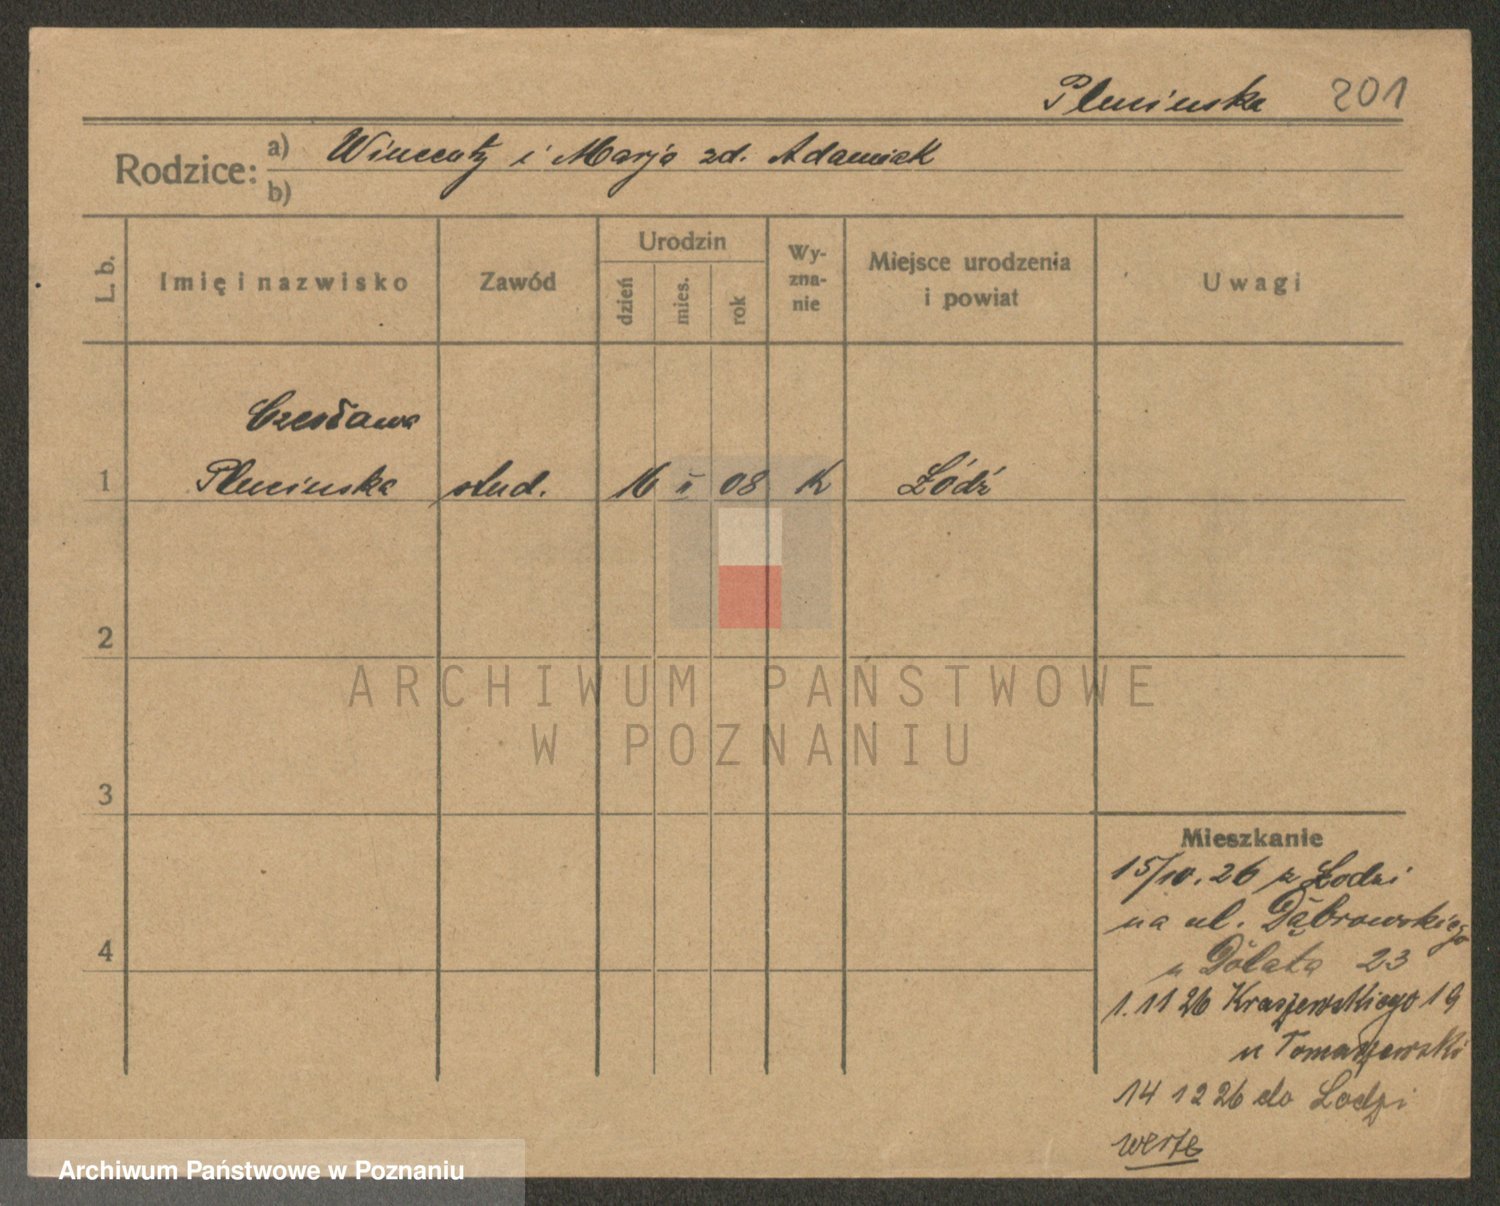 Plucinska 201
Rodzice: a) Wincenty i Marja zd. Adamiak
b)
L. b. Imię i nazwisko Zawód Urodzin dzień mies. rok Wy-zna-nie Miejsce urodzenia i powiat Uwagi
Czesława
1 Plucinska stud. 16 II 08 K Łódź
2
3
4
Mieszkanie
15/10. 26 z Łodzi
na ul. Dąbrowskiego
u Dolata 23
1. 11 26 Kraszewskiego 19
u Tomaszewski
14 12 26 do Łodzi
werte
ARCHIWUM PAŃSTWOWE
W POZNANIU
Archiwum Państwowe w Poznaniu